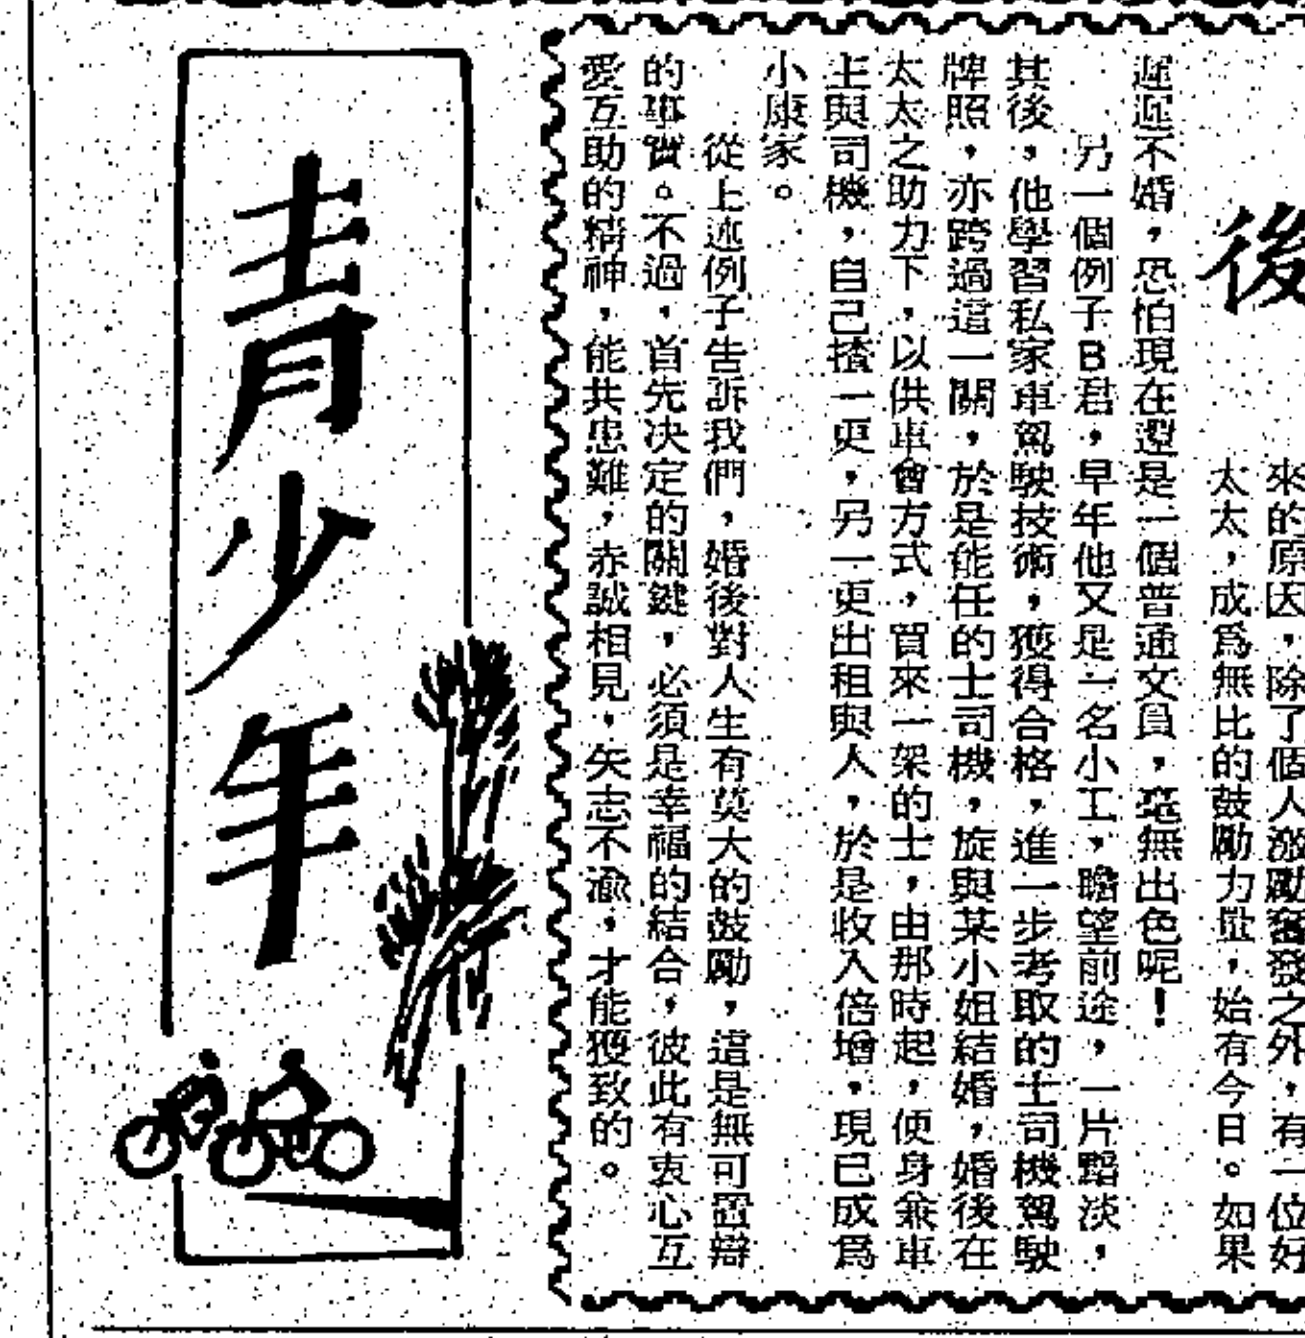 後
來的原因，除了個人激勵奮發之外，有一位好
太太，成爲無比的鼓勵力量，始有今日。如果
遲遲不婚，恐怕現在還是一個普通文員，毫無出色呢！
另一個例子B君，早年他又是一名小工，瞻望前途，一片黯淡，
其後，他學習私家車駕駛技術，獲得合格，進一步考取的士司機駕駛
牌照，亦跨過這一關，於是能任的士司機，旋與某小姐結婚，婚後在
太太之助力下，以供車會方式，買來一架的士，由那時起，便身兼車
主與司機，自己揸一更，另一更出租與人，於是收入倍增，現已成爲
小康家。
從上述例子告訴我們，婚後對人生有莫大的鼓勵，這是無可置辯
的事實。不過，首先決定的關鍵，必須是幸福的結合，彼此有衷心互
愛互助的精神，能共患難，赤誠相見，矢志不渝，才能獲致的。
青少年